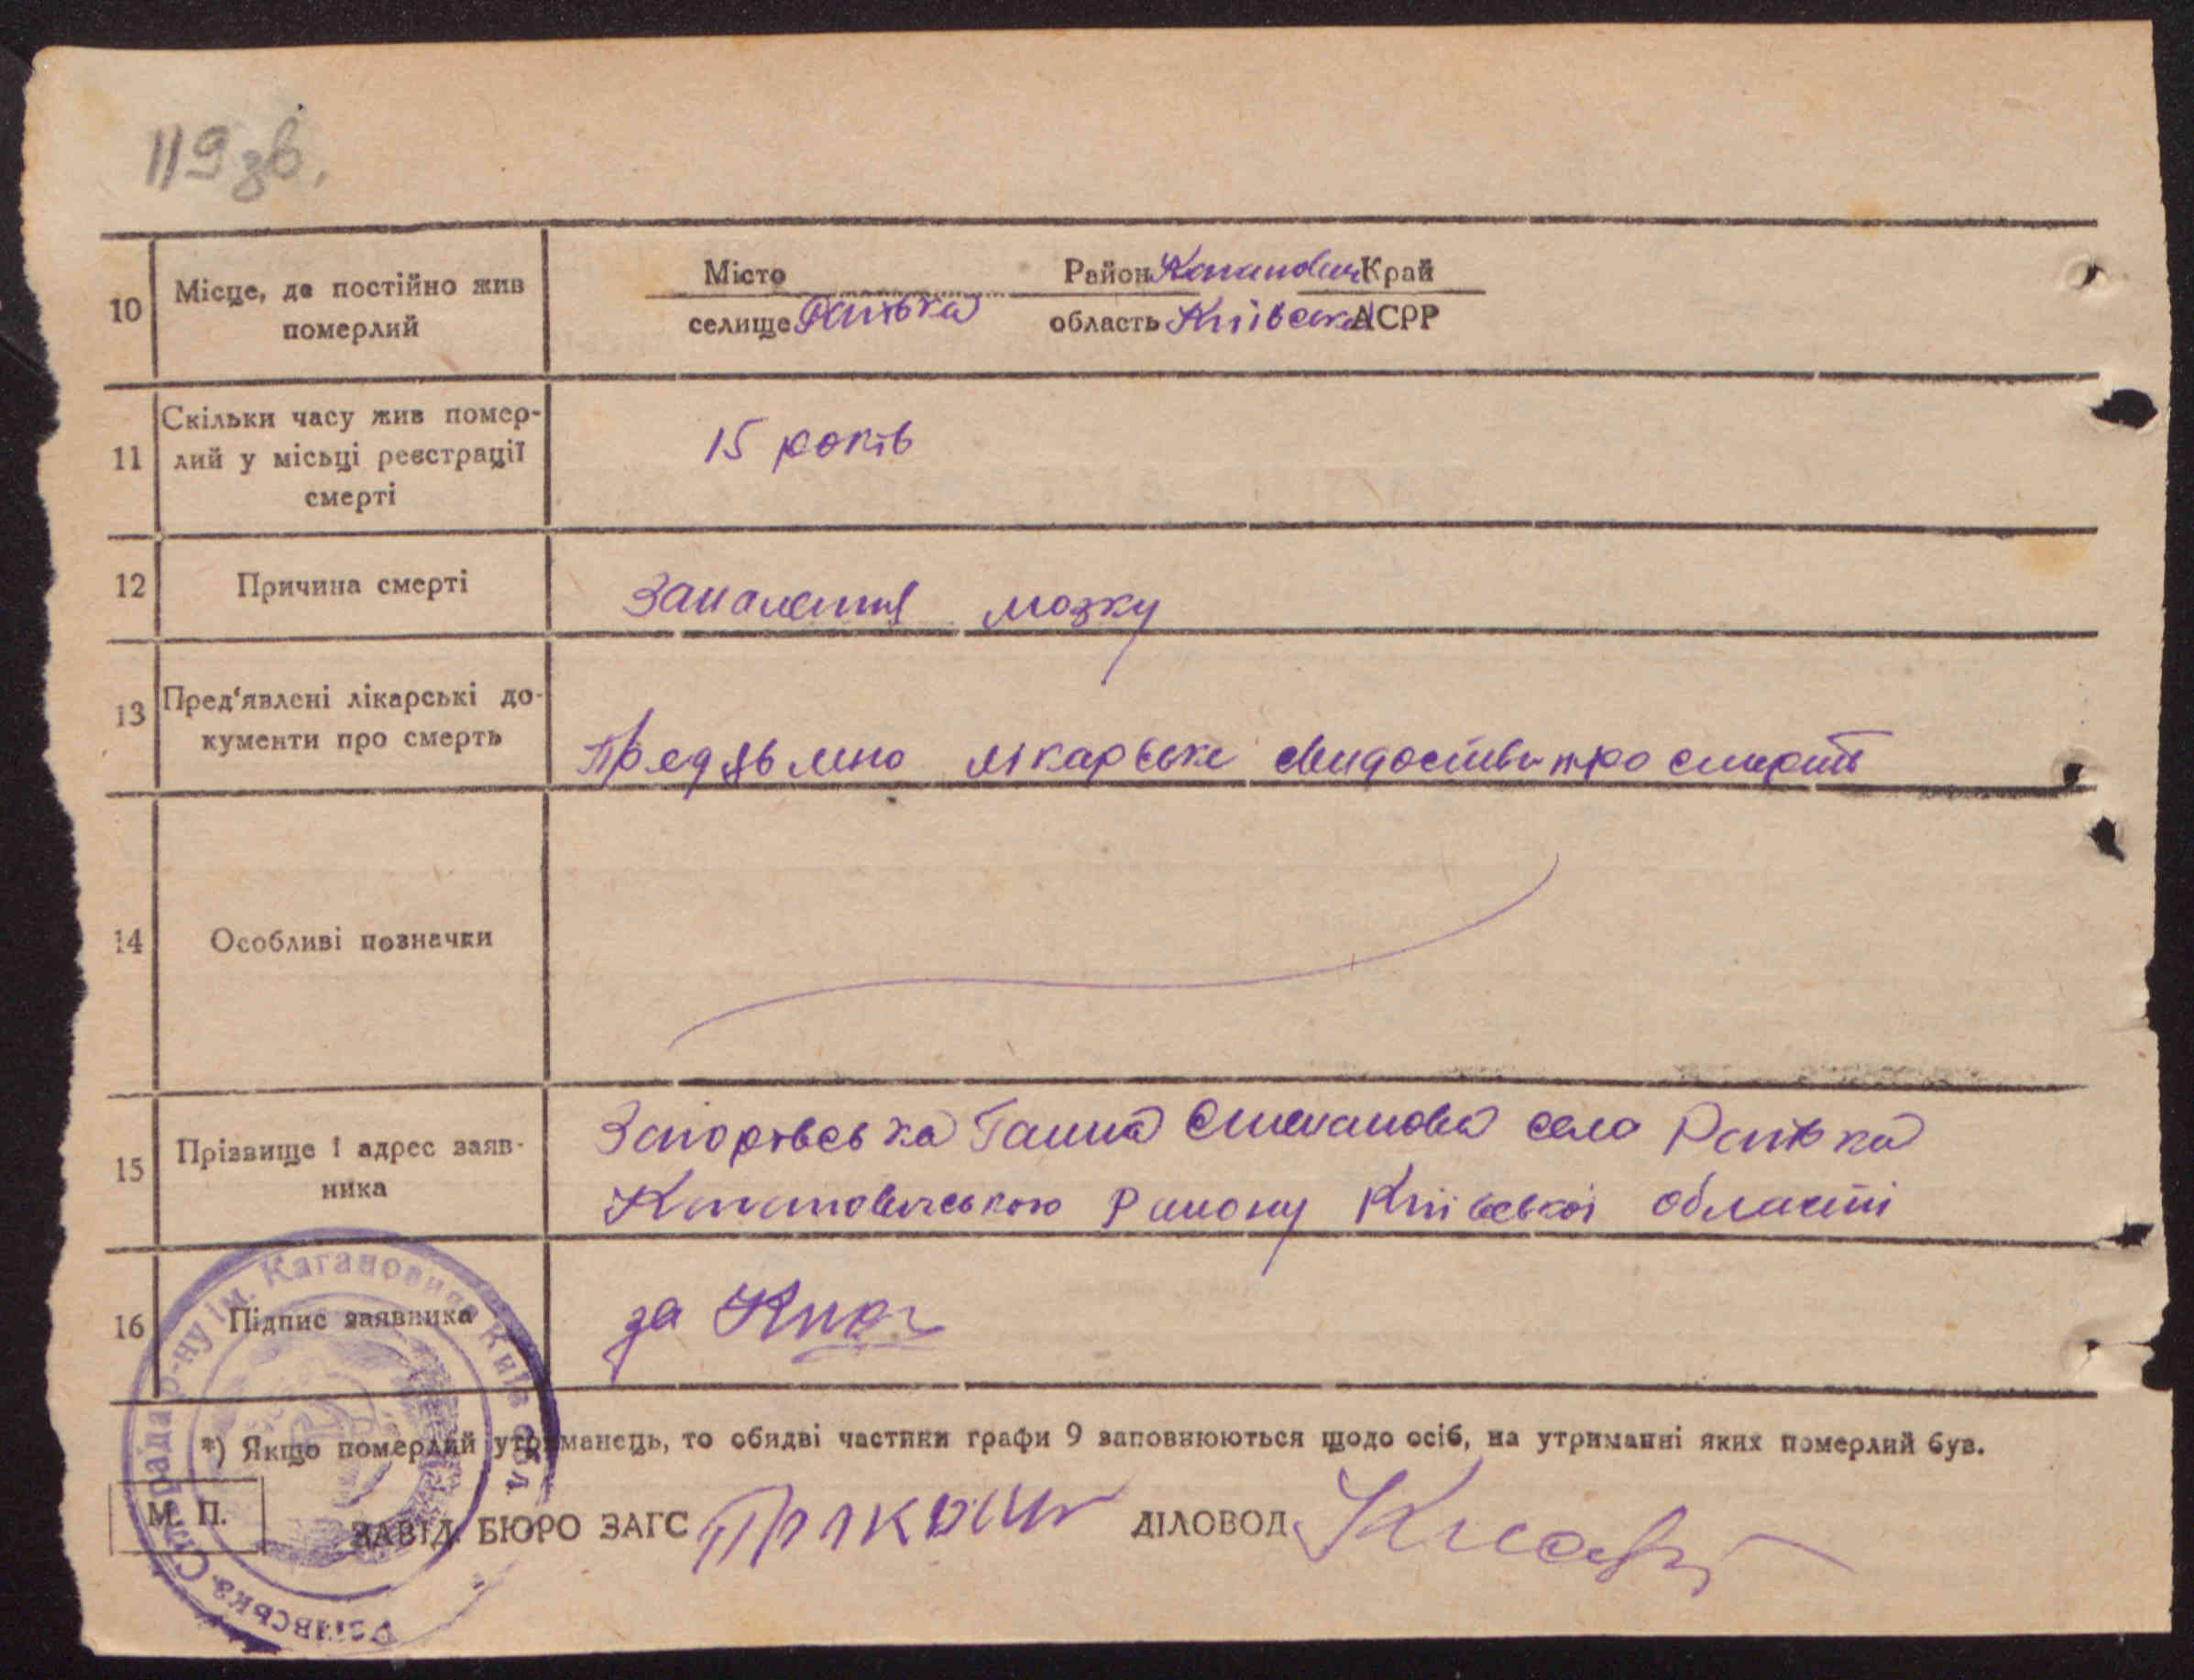 119 зв.
10 Місце, де постійно жив померлий
Місто Район Край
селище Рагівка область Київська АСРР
11 Скільки часу жив помер-
лий у місьці реєстрації
смерті
15 років
12 Причина смерті
Запалення мозку
13 Пред‘явлені лікарські до-
кументи про смерть
Предявлно лікарське про смерть
14 Особливі позначки
15 Прізвище і адрес заяв-
ника
Ганна Степановна село Рагівка
Району Київської области
16 Підпис заявника
за
*) Якщо померлий утриманець, то обидві частини графи 9 заповнюються щодо осіб, на утриманні яких померлий був.
М. П.
ЗАВІД. БЮРО ЗАГС ДІЛОВОД
Рагівська Сільрада р-ну ім. Кагановича Київ обл